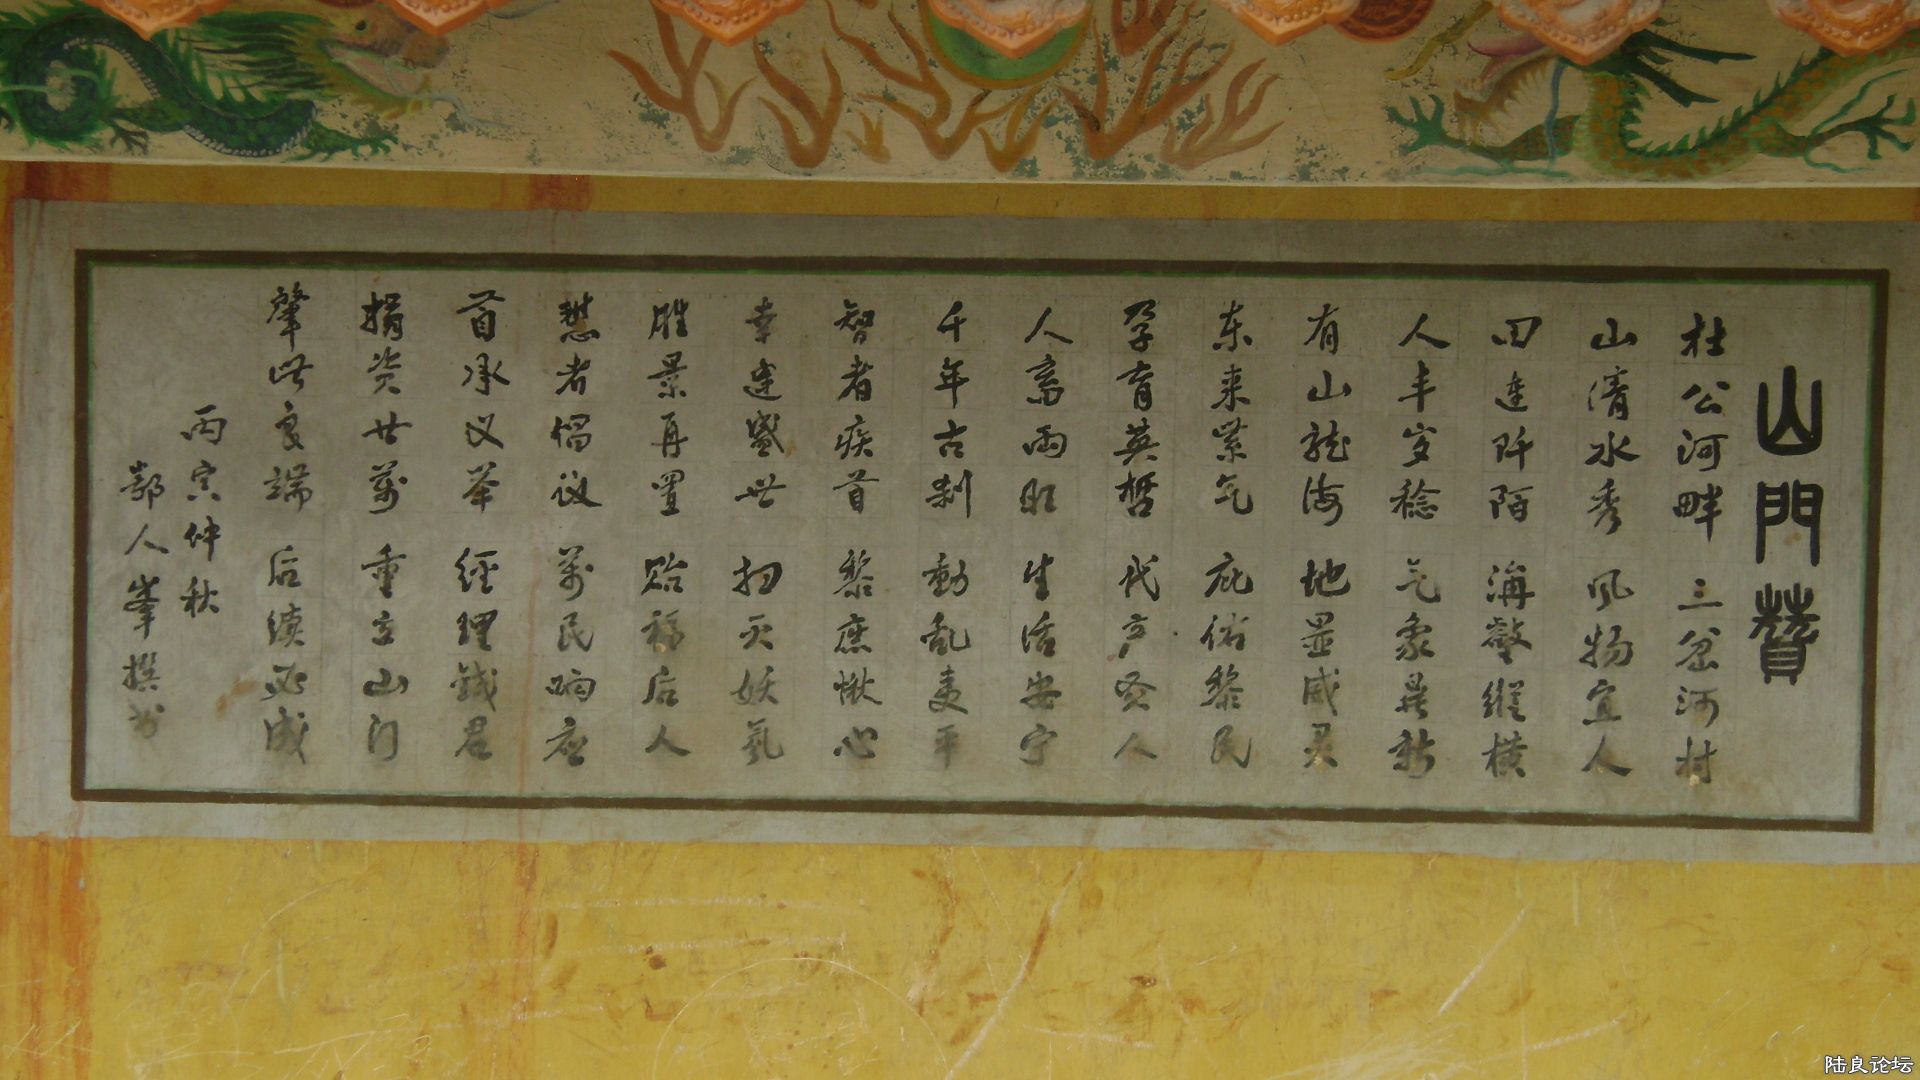 山門贊
杜公河畔 三岔河村
山清水秀 风物宜人
田连阡陌 沟壑纵横
人丰岁稔 气象昇新
有山龙海 地显威灵
东来紫气 庇佑黎民
孕育英哲 代产贤人
人畜两旺 生活安宁
千年古刹 動乱夷平
智者疾首 黎庶愀心
幸逢盛世 扫灭妖氛
胜景再置 贻福后人
慧者倡议 万民响应
首承义举 经理钱君
捐资廿萬 重立山门
肇此良端 后续必成
丙寅仲秋
鄢人峯撰书
陆良论坛